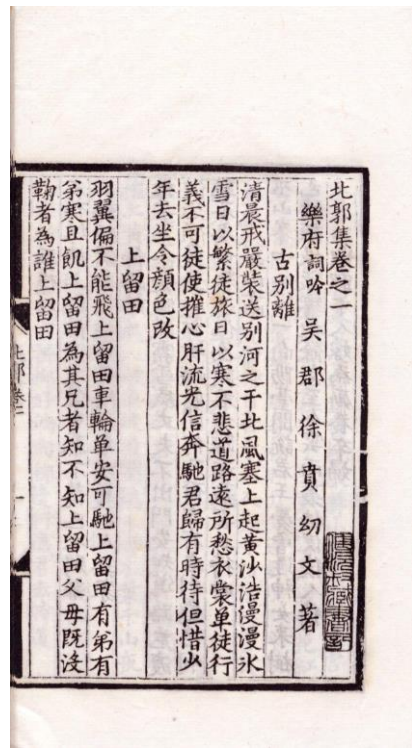 北郭集卷之一
樂府詞吟 吳郡徐賁幼文著
古別離
清晨戒嚴裝送別河之干北風塞上起黃沙浩漫漫氷
雪日以繁徒旅日以寒不悲道路遠所愁衣裳单徒行
義不可徒使摧心肝流光信奔馳君歸有時待但惜少
年去坐令顔色改
上留田
羽翼偏不能飛上留田車輪单安可馳上留田有弟有
弟寒且飢上留田為其兄者知不知上留田父毋既沒
鞠者為誰上留田
北郭卷一
一